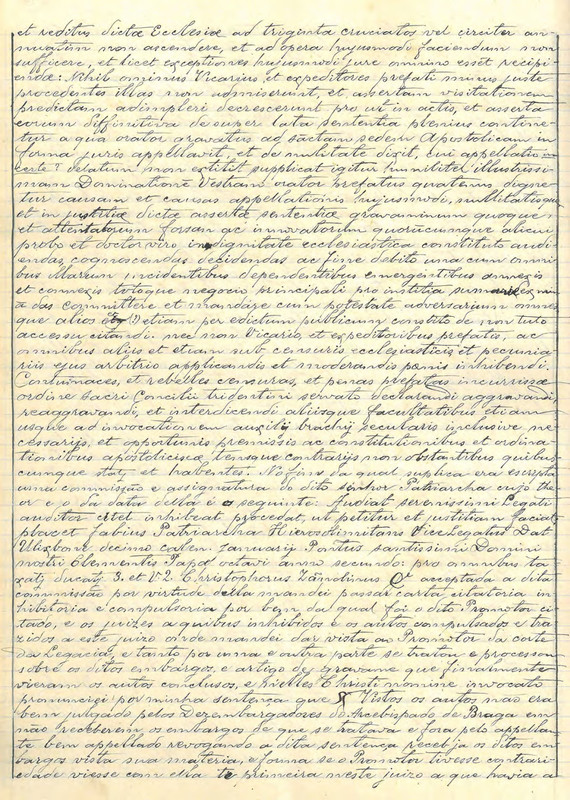 et reditus dictæ Ecclesiæ ad triginta cruciatos vel circiter an-
nuatim non ascendere, et ad opera hujusmodi faciendum non
sufficere, et licet exceptiones hujusmodi jure omnino essēt recipi-
endæ: Nihilominus Vicarius, et expeditores prefati minus juste
procedentes illas non admiserunt, et assertam visitationem
predictam adimpleri decreserunt pro ut in actis, et asserta
eorum diffinitiva de super lata sententia plenius contine-
tur a qua orator gravatus ad sactam sedem Apostolicam in
forma juris appellavit, et de nulitate dixit, cui appellatio
? delatum non extitit supplicat igitur humilitel illustrissi-
mam Dominatione Vestram orator prefatus quatenus digne-
tur causam et causas appellationis hujusmodi, nullitatisque
et in justitiæ dictæ assertæ sententiæ gravaminum quoque,
et attentatorum forsan ac innovatorum quorucumque alicui
probo et doctor viro in dignitate ecclesiastica constituto audi-
endas, cognoscendas decidendas ac fine debito una cum omni
bus illarum incidentibus dependentibus emergentibus annexis
et connexis totoque negocio principali pro institia
das committere et mandare cum potestate adversarium omnes
que alios (?) etiam per edictum publicum constito de non tuto
accessu citandi: nec non Vicario, et expeditoribus prefatis, ac
omnibus aliis et etiam sub censuris ecclesiasticis et pecunia
riis ejus arbitrio applicandis et moderandis pœnis inhibendi.
Contumaces, et rebelles censuras, et penas prefatas incurrisse
ordine Sacri Concilii tridentini servato declarandi aggravandi,
reaggravandi, et interdicendi aliisque facultatibus etiam
usque ad invocationem auxilii brachij secularis inclusive ne-
cessarijs, et opportunis premissis ac constitutionibus et ordina-
tionibus apostolicis cæterisque contrarijs non obstantibus quibus
cumque statj et habentes. No fim da qual suplica era escripta
uma commissão e assignatura do dito senhor Patriarcha cujo the-
or e o da data della é o seguinte: Audiat serenissimi Legati
auditor citet inhibeat procedat, ut petitur et iustitiam faciat
placet fabius Patriarcha Hierosolimitanus Vicelegatus Dat
Ulixbone decimo calen. Januarij Pontus santissimi Domini
nostri Clementis Papæ octavi anno secundo: pro omnibus ta
xatj ducatj 3. et V2 Christophorus Zanolinus. acceptada a dita
commissão por virtude della mandei passar carta citatoria in
hibitoria e compulsoria por bem da qual foi o dito Promotor ci-
tado, e os juizes a quibus inhibidos e os autos compulsados e tra
zidos a este juizo onde mandei dar vista ao Promotor da corte
da Legacia, e tanto por uma e outra parte se tratou e processou
sobre os ditos embargos, e artigo de gravame que finalmente
vieram os autos conclusos, e nelles Christi nomine invocato
pronunciei por minha sentença que Vistos os autos não era
bem julgado pelos Dezembargadores do Arcebispado de Braga em
não receberem os embargos de que se tratava e fora pelo appellan-
te bem appellado revogando a dita sentença recebeja os ditos em
bargos vista sua materia, e forma se o Promotor tivesse contrari
edade viesse com ella tê primeira neste juizo a que havia a